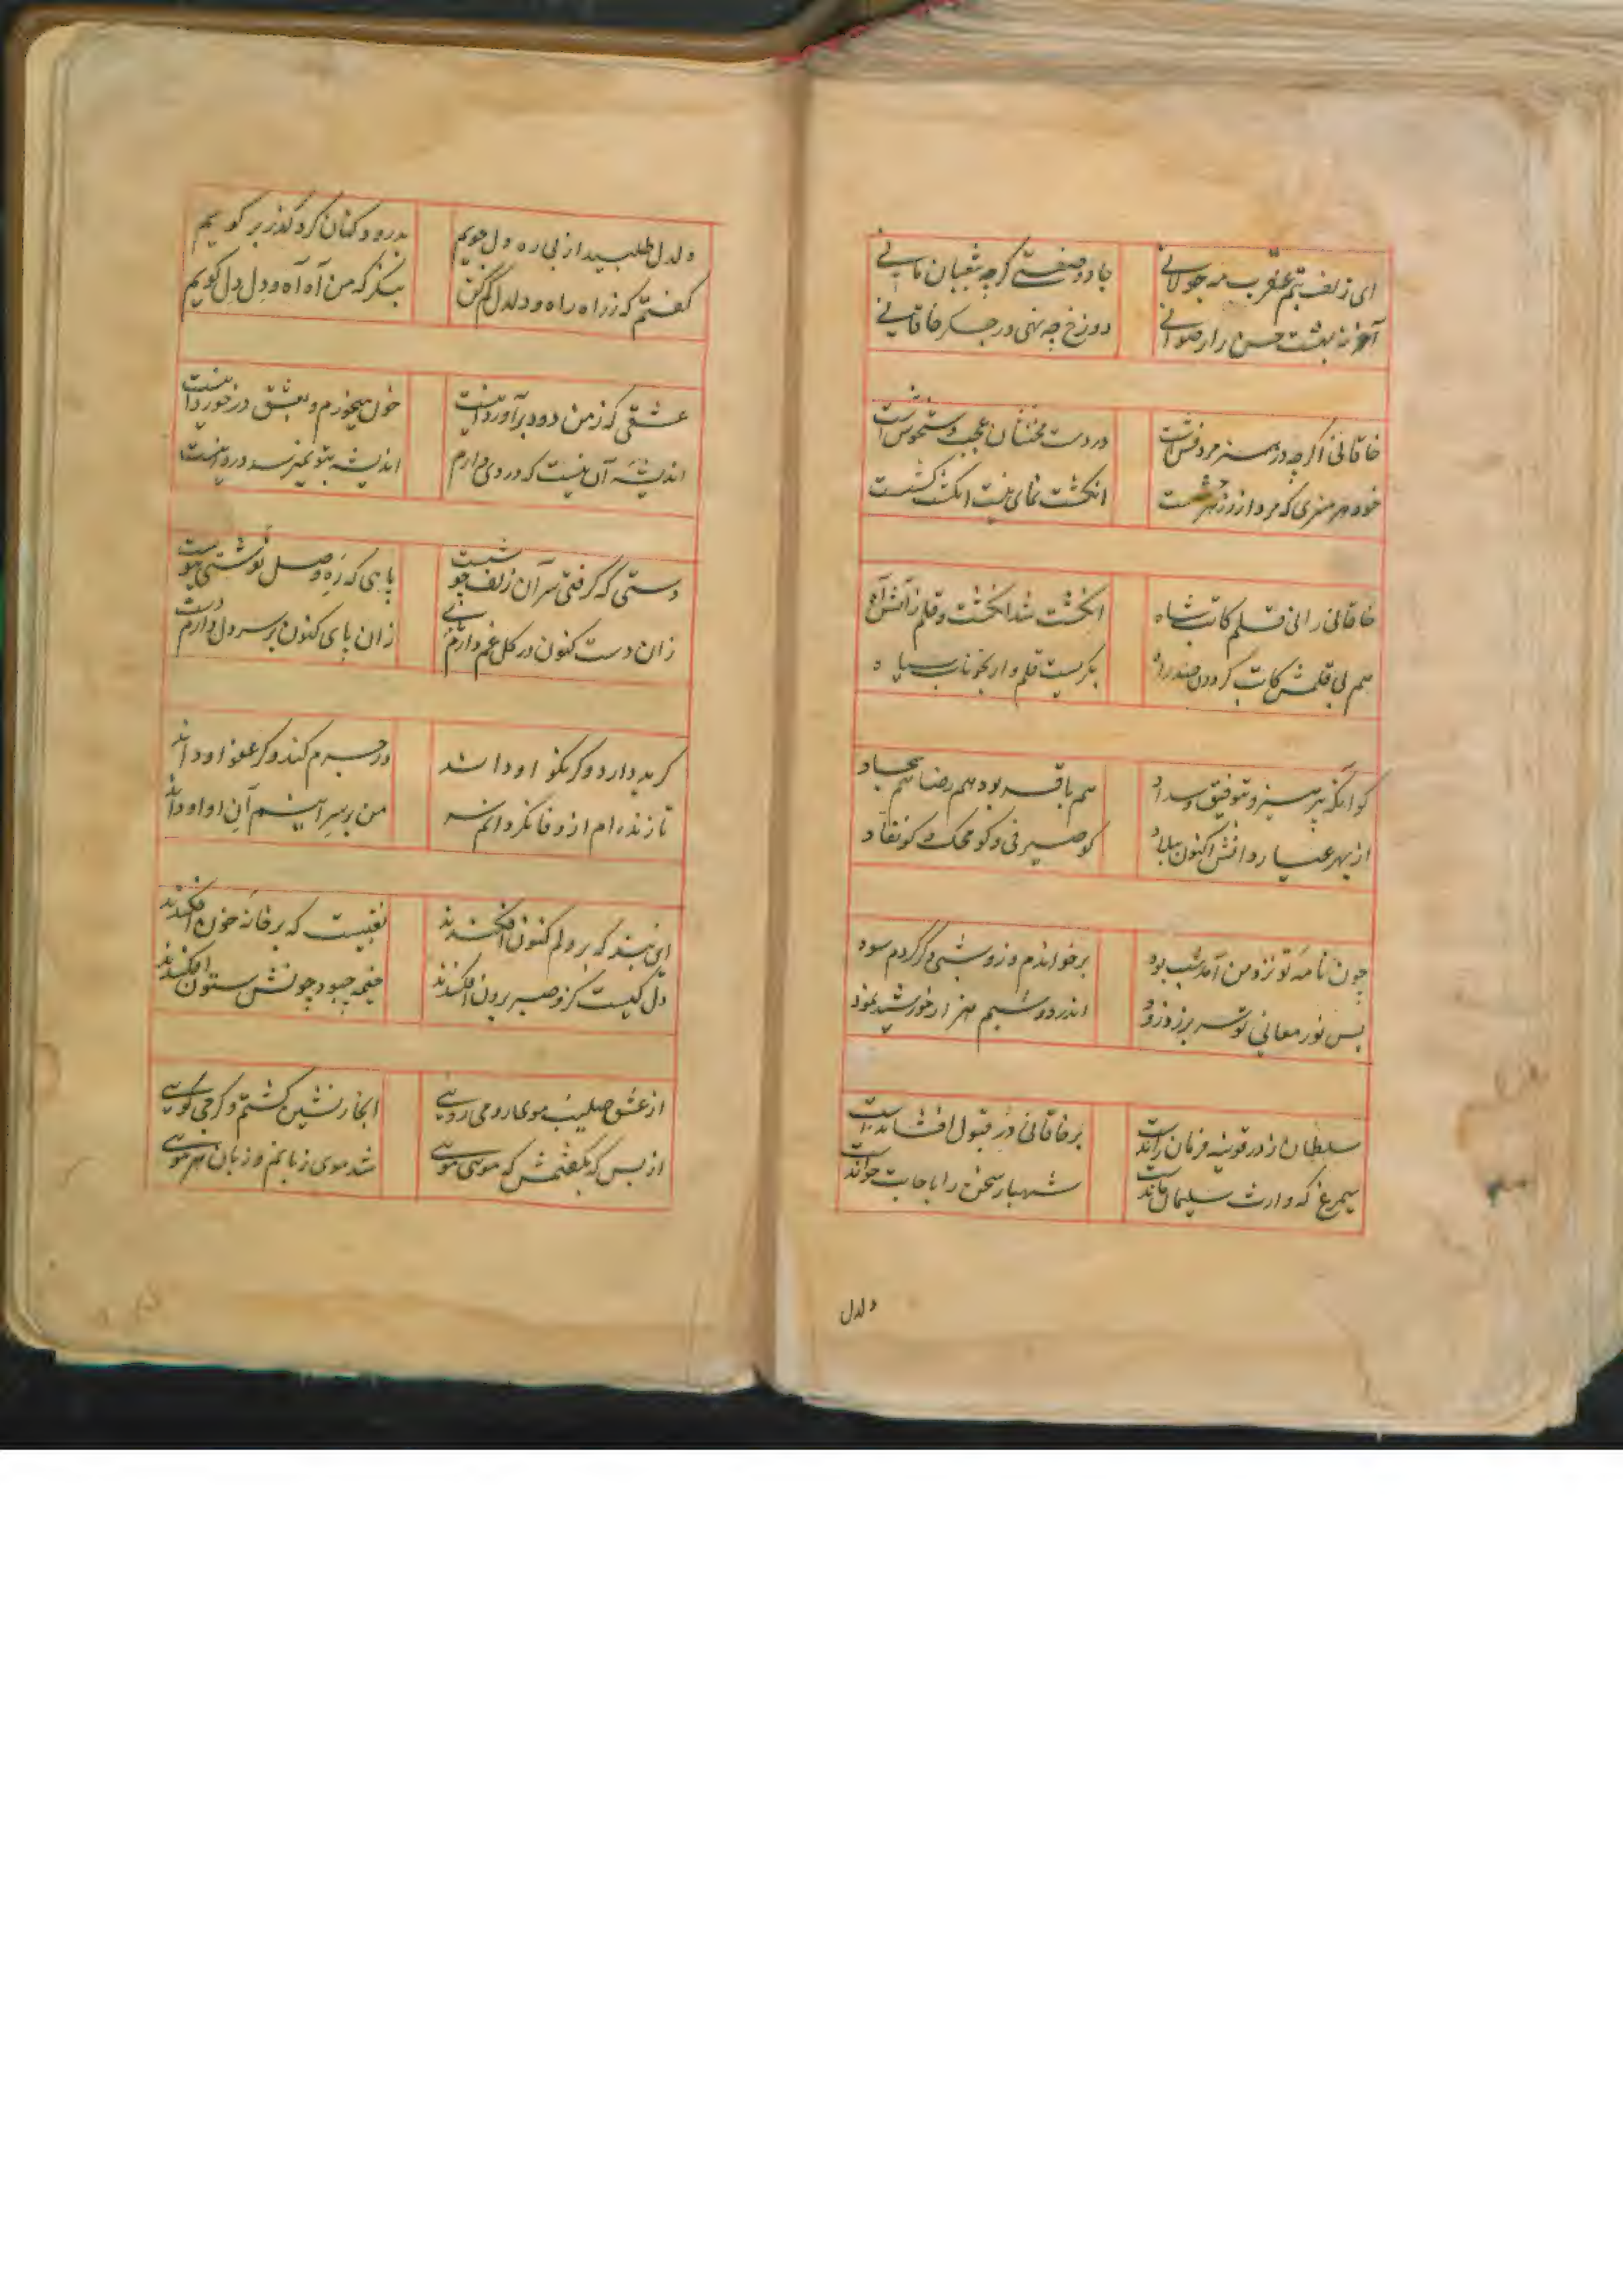 ای زلف بتم عقرب مه جولانی جادو صفتی گرچه بثعبان مانی
آخر نه بهشت حسن را رضوانی دوزخ چه نهی در جگر خاقانی
خاقانی اگرچه در هنر مردوشست در دست مخنثان عجب دستخوشست
خود هر هنری که مرد ازو زهرچشست انگشت نمای نیست انگشت کشست
خاقانی را نی قلم کاتب شاه انگشت شد انگشت و قلم ز آتش آه
هم بی قلمش کاتب گردون صد راه بگریست قلم وار بخوناب سیاه
کو آنکه بپرهیز و بتوفیق و سداد هم باقر بود هم رضا هم سجاد
از بهر عیار دانش اکنون ببلاد کو صیرفی و کو محک و کو نقاد
چون نامه تو نزد من آمد شب بود برخواندم و زو شب دگر کردم سود
پس نور معانی تو سر بر زد زود اندر دو شبم هزار خورشید نمود
سلطان ز در قونیه فرمان راندست بر خاقانی در قبول افشاندست
سیمرغ که وارث سلیمان ماندست شهباز سخن را باجابت خواندست
دلدل
دلدل طلبید از پی ره دلجویم بدرود کنان کرد گذر بر کویم
گفتم که ز راه راه و دلدل کم کن بنگر که من آه آه و دل دل گویم
عشقی که ز من دود برآورد اینست خون میخورم و بعشق درخورد اینست
اندیشه آن نیست که دردی دارم اندیشه بتو نمیرسد درد اینست
دستی که گرفتی سر آن زلف چو شست پایی که ره وصل نوشتی پیوست
زان دست کنون در گل غم دارم پای زان پای کنون بر سر دل دارم دست
گر بد دارد و گر نکو او داند ور جرم کند و گر عفو او داند
تا زنده‌ام از وفا نگردانم سر من بر سر اینم آن او او داند
این بند که بر دلم کنون افکندند نقبیست که بر خانه خون افکندند
دل کیست کزو صبر برون افکندند خیمه چبود چونش ستون افکندند
از عشق صلیب موی رومی رویی ابخاز نشین گشتم و گرجی کویی
از بس که بگفتمش که مویی مویی شد موی زبانم و زبان هر مویی